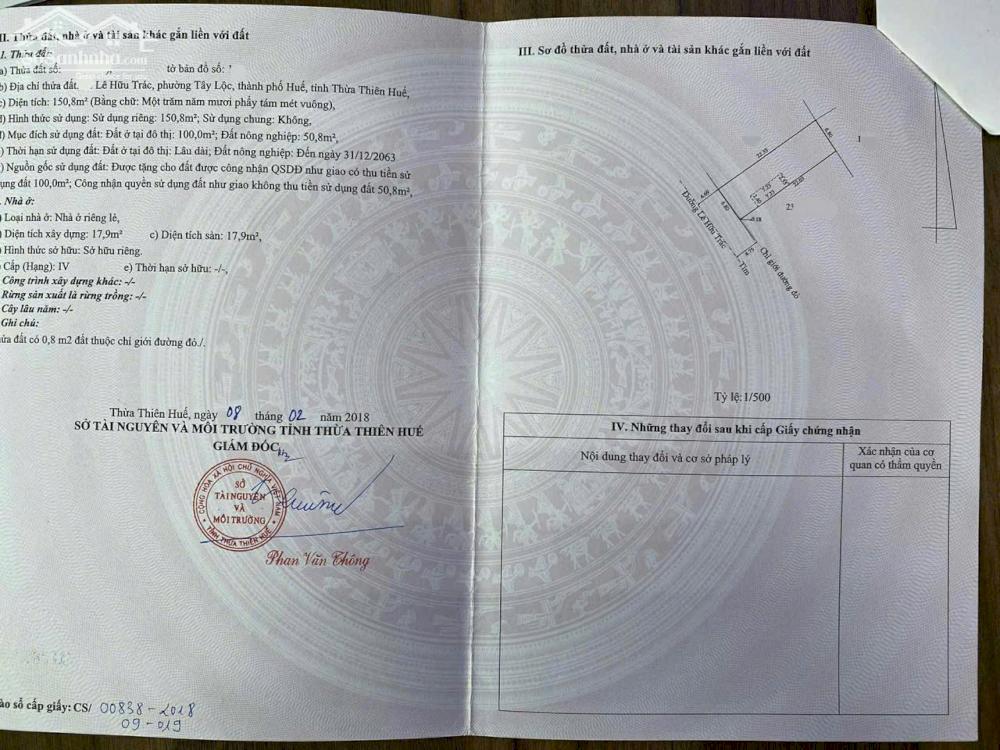 II. Thửa đất, nhà ở và tài sản khác gắn liền với đất
1. Thửa đất:
a) Thửa đất số: tờ bản đồ số:
b) Địa chỉ thửa đất: Lê Hữu Trác, phường Tây Lộc, thành phố Huế, tỉnh Thừa Thiên Huế,
c) Diện tích: 150,8m² (Bằng chữ: Một trăm năm mươi phẩy tám mét vuông),
d) Hình thức sử dụng: Sử dụng riêng: 150,8m²; Sử dụng chung: Không,
) Mục đích sử dụng đất: Đất ở tại đô thị: 100,0m²; Đất nông nghiệp: 50,8m²,
) Thời hạn sử dụng đất: Đất ở tại đô thị: Lâu dài; Đất nông nghiệp: Đến ngày 31/12/2063
) Nguồn gốc sử dụng đất: Được tặng cho đất được công nhận QSDĐ như giao có thu tiền sử
ụng đất 100,0m²; Công nhận quyền sử dụng đất như giao không thu tiền sử dụng đất 50,8m²,
. Nhà ở:
) Loại nhà ở: Nhà ở riêng lẻ,
) Diện tích xây dựng: 17,9m² c) Diện tích sàn: 17,9m²,
) Hình thức sở hữu: Sở hữu riêng.
) Cấp (Hạng): IV e) Thời hạn sở hữu: -/-,
Công trình xây dựng khác: -/-
Rừng sản xuất là rừng trồng: -/-
Cây lâu năm: -/-
Ghi chú:
ửa đất có 0,8 m2 đất thuộc chỉ giới đường đỏ./.
Thừa Thiên Huế, ngày 08 tháng 02 năm 2018
SỞ TÀI NGUYÊN VÀ MÔI TRƯỜNG TỈNH THỪA THIÊN HUẾ
GIÁM ĐỐC
CỘNG HÒA XÃ HỘI CHỦ NGHĨA VIỆT NAM
SỞ
TÀI NGUYÊN
VÀ
MÔI TRƯỜNG
TỈNH THỪA THIÊN HUẾ
Phan Văn Thông
ào sổ cấp giấy: CS/ 00838-2018
09-019
III. Sơ đồ thửa đất, nhà ở và tài sản khác gắn liền với đất
1
6.80
22.35
22.05
7.25
7.25
4.60
6.80
23
0.18
4.75
Đường Lê Hữu Trác
Tim
Chỉ giới đường đỏ
Tỷ lệ: 1/500
IV. Những thay đổi sau khi cấp Giấy chứng nhận
Nội dung thay đổi và cơ sở pháp lý
Xác nhận của cơ
quan có thẩm quyền